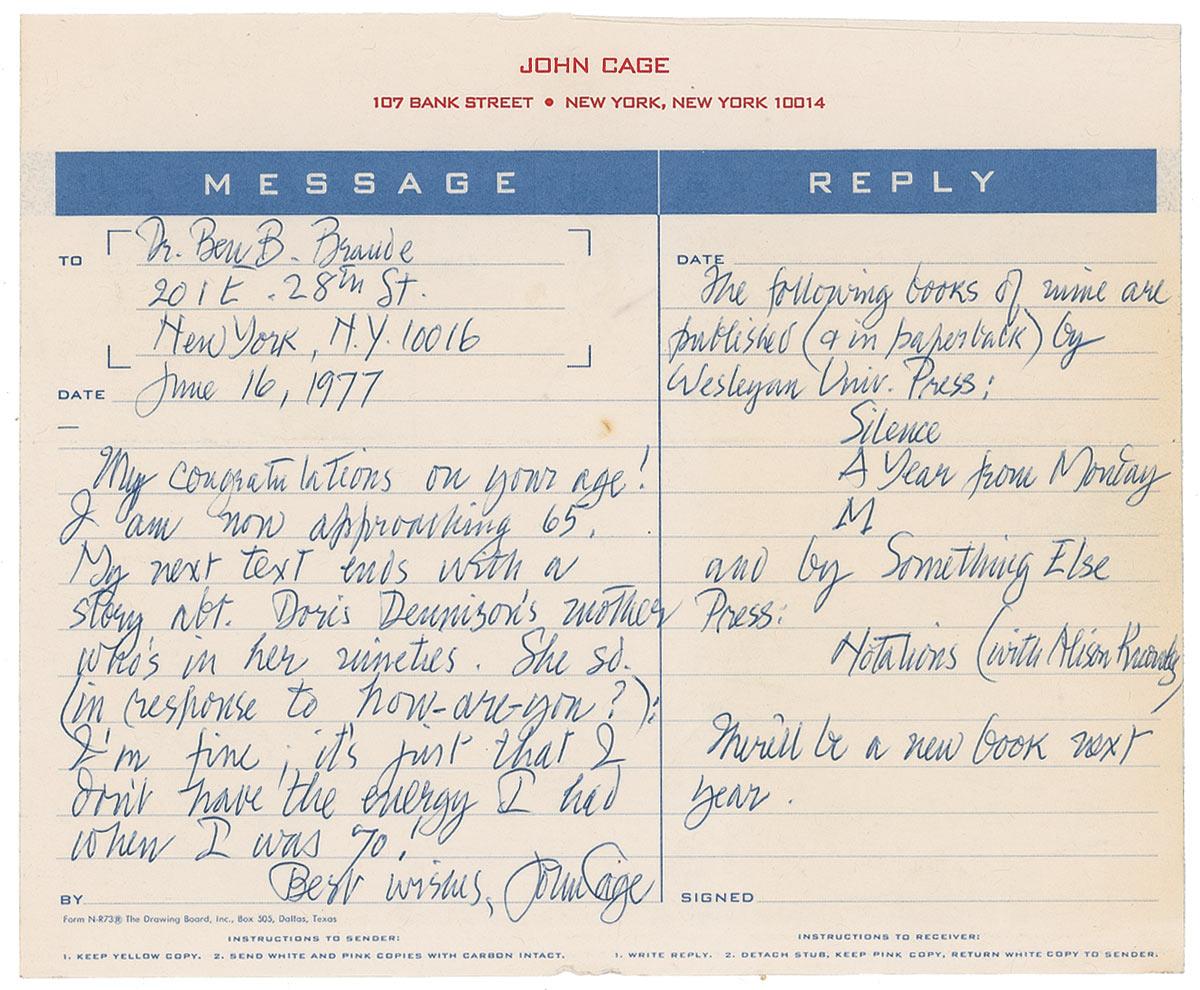 JOHN CAGE
107 BANK STREET • NEW YORK, NEW YORK 10014
MESSAGE
TO
Dr. Ben B. Braude
201 E. 28th St.
New York, N.Y. 10016
DATE June 16, 1977
My congratulations on your age!
I am now approaching 65.
My next text ends with a
story abt. Doris Dennison's mother
who's in her nineties. She sd.
(in response to how-are-you?):
I'm fine; it's just that I
don't have the energy I had
when I was 70!
Best wishes, John Cage
BY
REPLY
DATE
The following books of mine are
published (& in paperback) by
Wesleyan Univ. Press:
Silence
A Year from Monday
M
and by Something Else
Press:
Notations (with Alison Knowles)
There'll be a new book next
year.
SIGNED
Form N-R73® The Drawing Board, Inc., Box 505, Dallas, Texas
INSTRUCTIONS TO SENDER:
1. KEEP YELLOW COPY. 2. SEND WHITE AND PINK COPIES WITH CARBON INTACT.
INSTRUCTIONS TO RECEIVER:
1. WRITE REPLY. 2. DETACH STUB, KEEP PINK COPY, RETURN WHITE COPY TO SENDER.